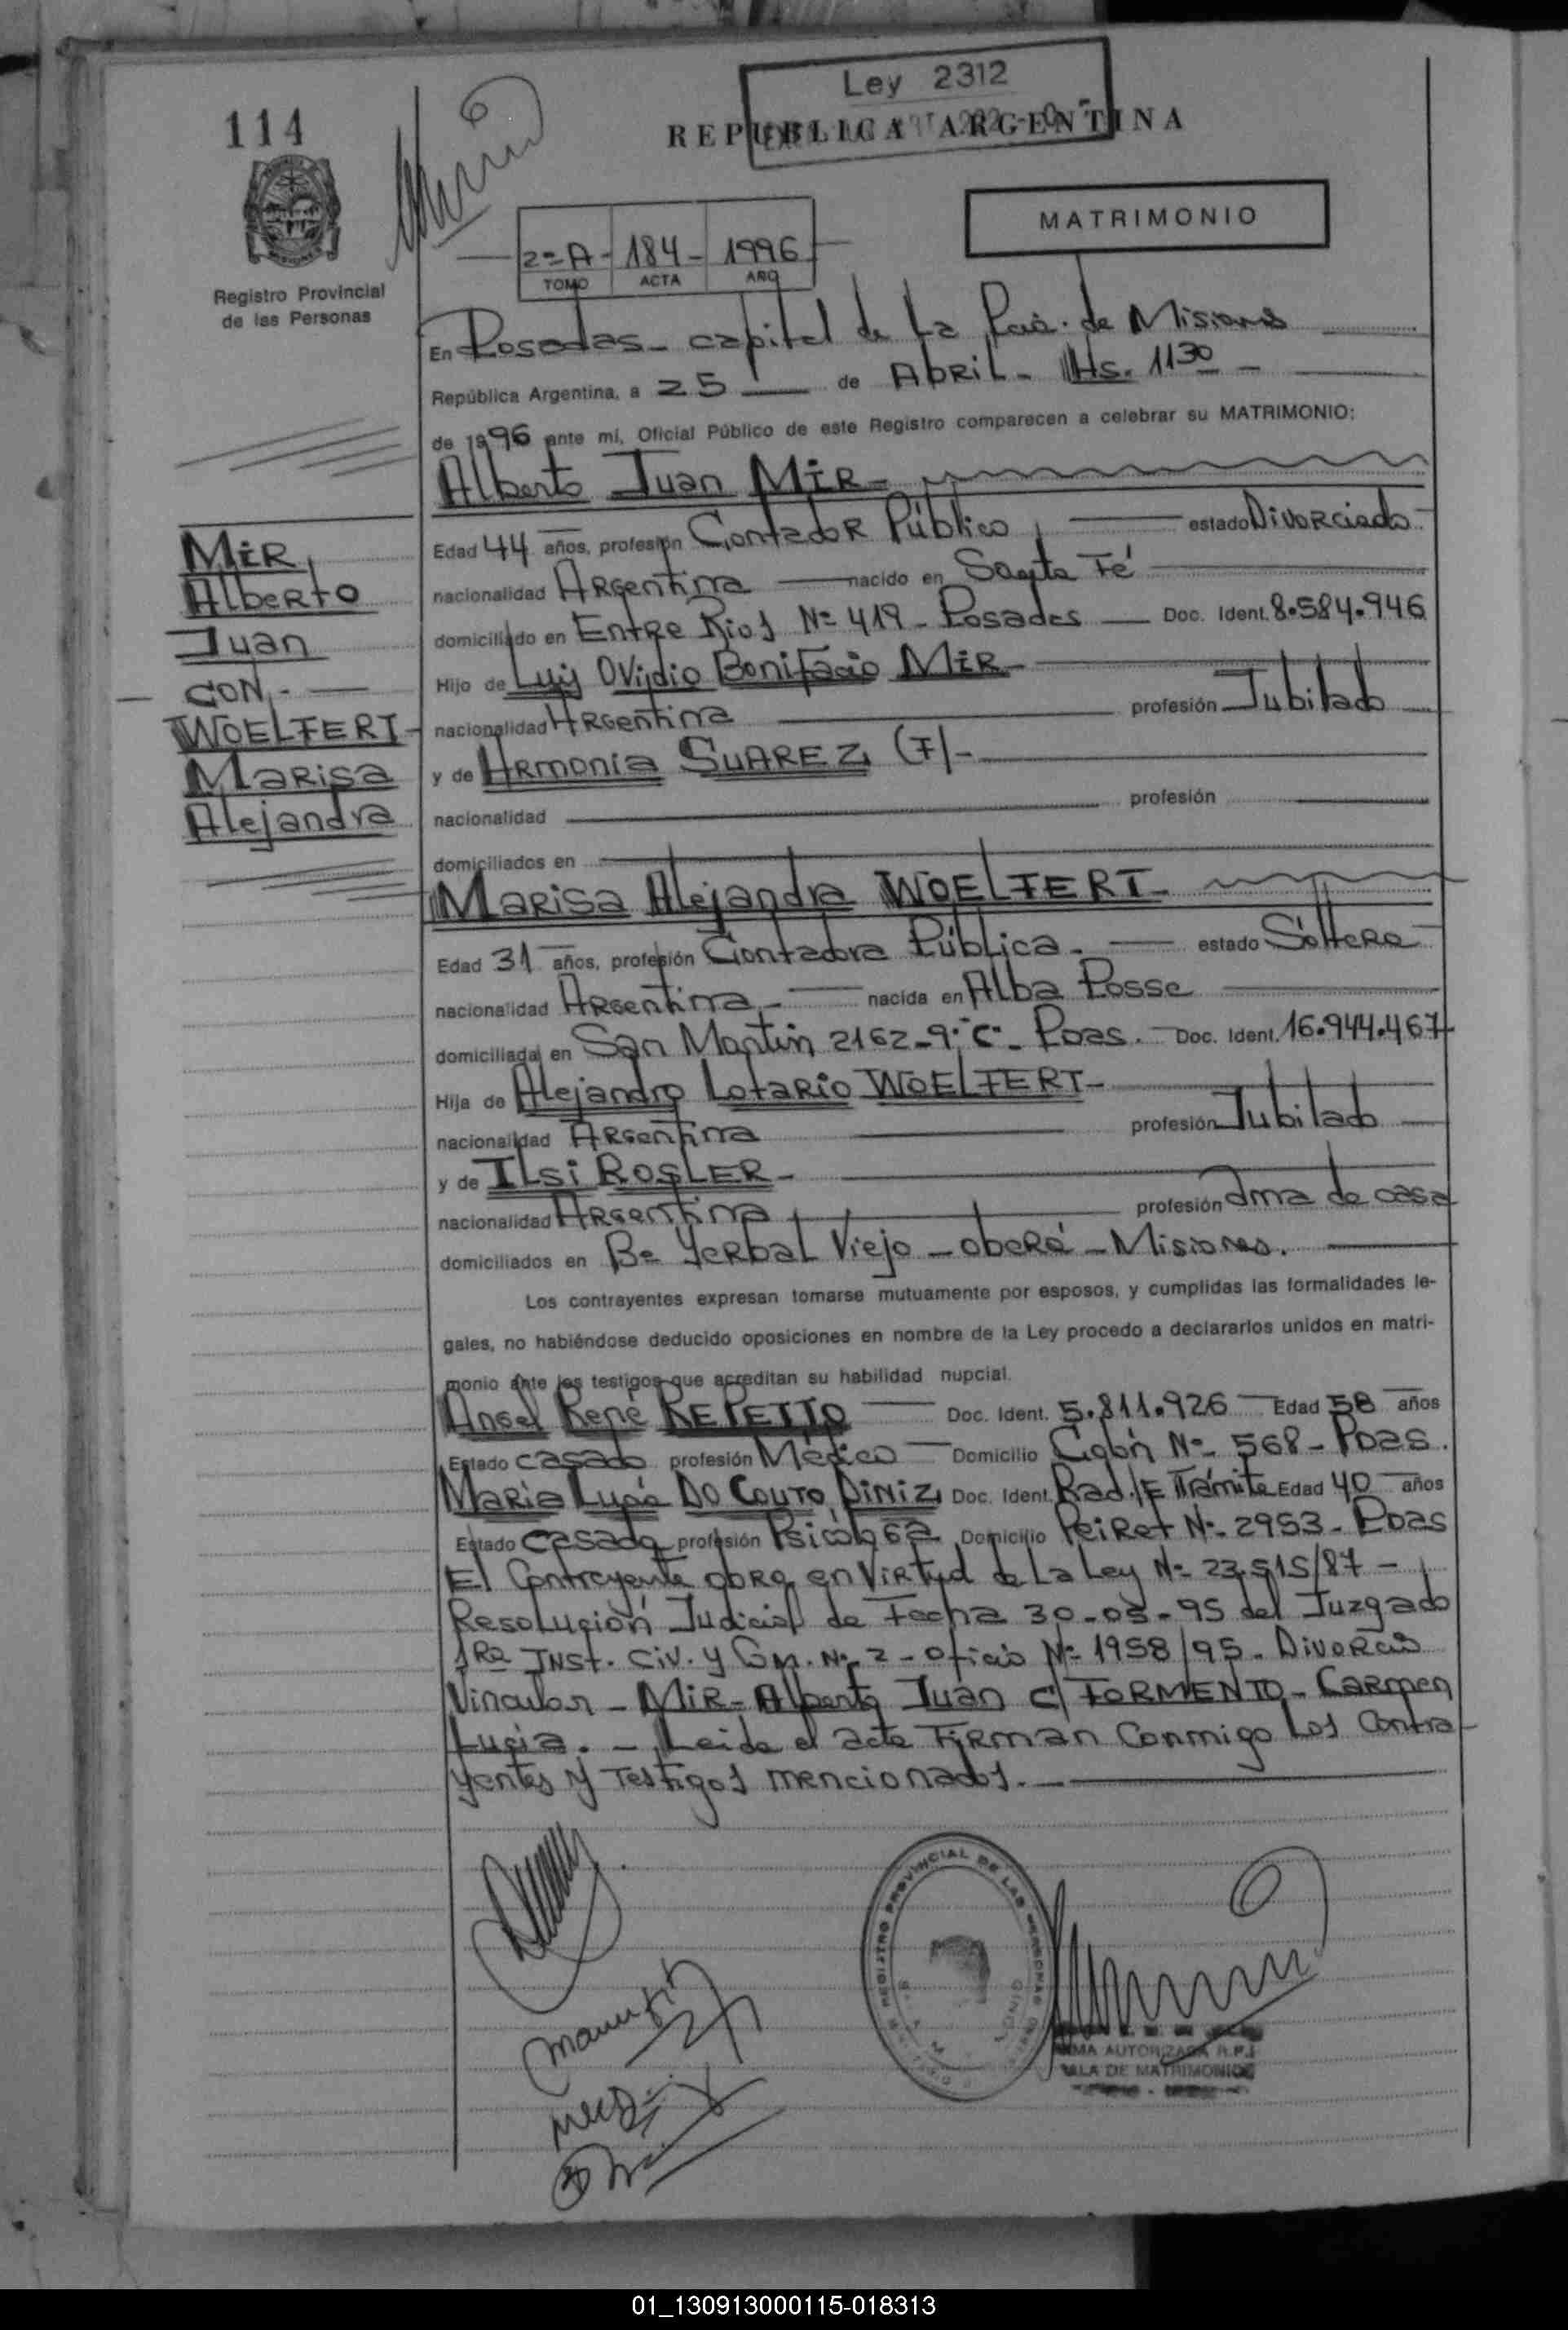 Ley 2312
114
REPUBLICA ARGENTINA
MATRIMONIO
2º A - 184 - 1996
TOMO ACTA AÑO
Registro Provincial
de las Personas
En Posadas - capital de La Pcia. de Misiones
República Argentina, a 25 de Abril - Hs. 11 30 -
de 1996 ante mi, Oficial Público de este Registro comparecen a celebrar su MATRIMONIO:
Alberto Juan MIR -
Edad 44 años, profesión Contador Público, estado Divorciado
nacionalidad Argentina nacido en Santa Fé
domiciliado en Entre Rios Nº 419 - Posadas Doc. Ident. 8.584.946
Hijo de Luis Ovidio Bonifacio MIR -
nacionalidad Argentina profesión Jubilado
y de Armonia SUAREZ, (F) -
nacionalidad profesión
domiciliados en
MIR,
Alberto
Juan
- CON -
WOELFERT -
Marisa
Alejandra
Marisa Alejandra WOELFERT -
Edad 31 años, profesión Contadora Pública - estado Soltera
nacionalidad Argentina - nacida en Alba Posse
domiciliada en San Martin 2162 - 9º "C" - Pdas. Doc. Ident. 16.944.467
Hija de Alejandro Lotario WOELFERT -
nacionalidad Argentina profesión Jubilado
y de Ilsi ROSLER -
nacionalidad Argentina, profesión ama de casa
domiciliados en Bº Yerbal Viejo - oberá - Misiones.
Los contrayentes expresan tomarse mutuamente por esposos, y cumplidas las formalidades le-
gales, no habiéndose deducido oposiciones en nombre de la Ley procedo a declararlos unidos en matri-
monio ante los testigos que acreditan su habilidad nupcial.
Angel René REPETTO Doc. Ident. 5.811.926 Edad 58 años
Estado casado profesión Médico Domicilio Colón Nº 568 - Pdas.
Maria Lupé DO COUTO DINIZ, Doc. Ident. Rad./E Trámite Edad 40 años
Estado casada profesión Psicóloga Domicilio Peiret Nº 2953 - Pdas
El Contrayente obra en Virtud de La Ley Nº 23.515/87 -
Resolución Judicial de Fecha 30-05-95 del Juzgado
1ra Inst. Civ. y Com. Nº 2 - oficio Nº 1958/95 - Divorcio
Vincular - MIR - Alberto Juan c/ FORMENTO - Carmen
Lucia. - Leida el acta Firman Conmigo Los Contra-
yentes y Testigos mencionados. -
REGISTRO PROVINCIAL DE LAS PERSONAS
FIRMA AUTORIZADA R.P.
SALA DE MATRIMONIOS
01_130913000115-018313